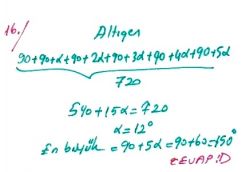 16./
Altıgen
90+90+α+90+2α+90+3α+90+4α+90+5α
720
540+15α=720
α=12°
En büyük = 90+5α=90+60=150°
CEVAP:D